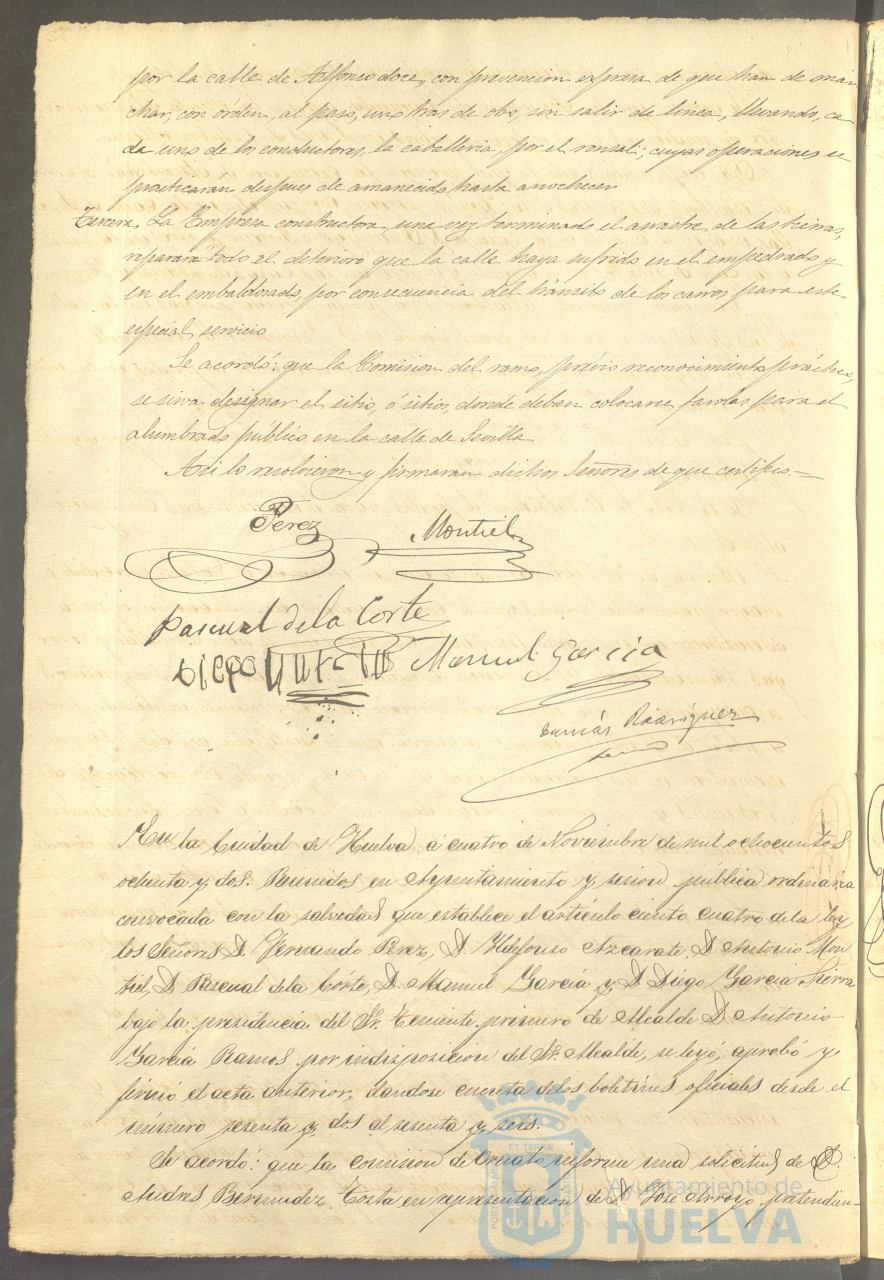 por la calle de Alfonso doce, con prevencion expresa de que han de mar-
char, con órden, al paso, uno tras de otro, sin salir de linea, llevando, ca-
da uno de los conductores, la caballeria, por el ronsal; cuyas operaciones se
practicaran despues de amanecido hasta anochecer
Tercera. La Empresa constructora, una vez terminado el arrastre de las tierras,
reparará todo el deterioro que la calle haya sufrido en el empedrado y
en el embaldosado, por consecuencia del tránsito de los carros para este
especial servicio
Se acordó: que la Comision del ramo, prévio reconocimiento práctico,
se sirva designar el sitio, ó sitios, donde deban colocarse farolas para el
alumbrado público en la calle de Sevilla
Asi lo resolvieron y firmaran dichos Señores de que certifico.=
Perez
Montiel
Pascual de la Corte
Diego
Manuel Garcia
Rodriguez
En la Ciudad de Huelva á cuatro de Noviembre de mil ochocientos
ochenta y dos. Reunidos en Ayuntamiento y sesion pública ordinaria
convocada con la salvedad que establece el artículo ciento cuatro de la ley
los Señores D. Fernando Perez, D. Yldefonso Azcarate, D Antonio Mon
tiel, D Pascual de la Córte, D. Manuel García y D Diego García Sierra
bajo la presidencia del Sr. Teniente primero de Alcalde D Antonio
García Ramos por indisposicion del Sr. Alcalde, se leyó, aprobó y
firmó el acta anterior, dandose cuenta de los boletines oficiales desde el
número sesenta y dos al sesenta y seis.
Se acordó: que la comision de Ornato informe una solicitud de D.
Andres Bermudez Tosta en representacion de D José Arroyo pretendien-
Ayuntamiento de
HUELVA